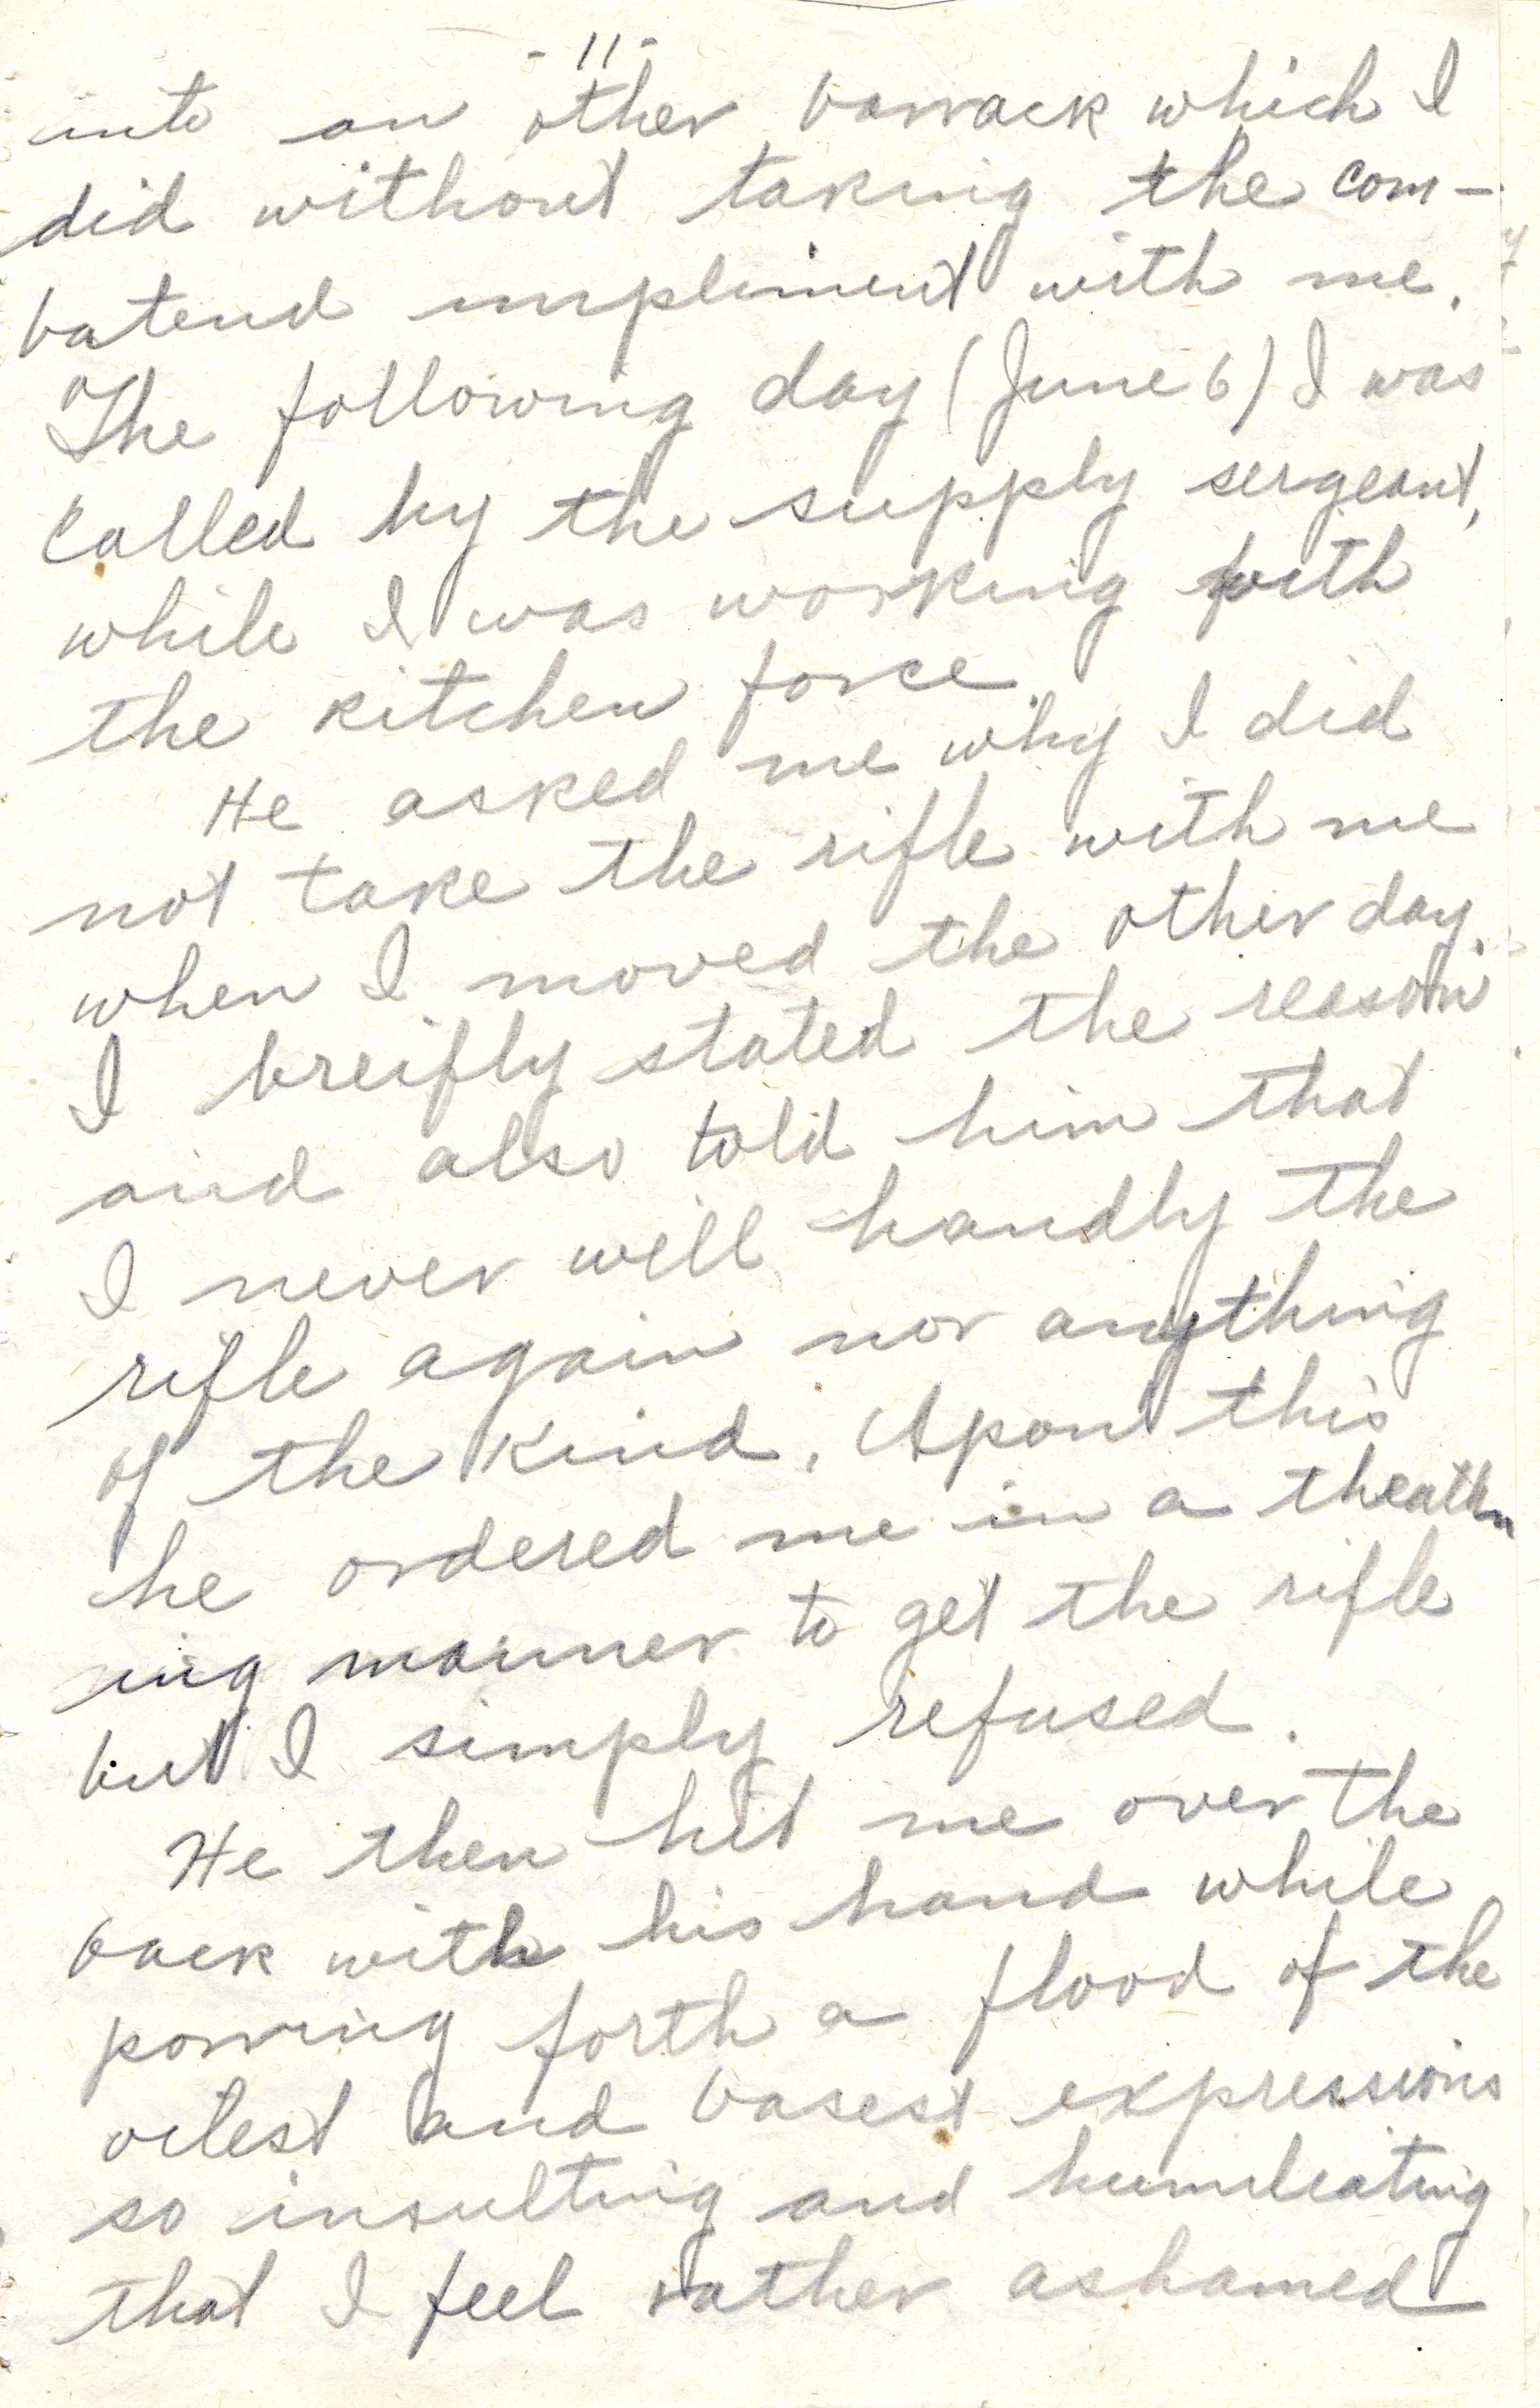 - 11 -
into an other barrack which I
did without taking the com-
batend impliment with me.
The following day (June 6) I was
called by the supply sergeant,
while I was working with
the kitchen force.
He asked me why I did
not take the rifle with me
when I moved the other day.
I breifly stated the reason
and also told him that
I never will handly the
rifle again nor anything
of the kind. Apon this
he ordered me in a theattn
ing manner to get the rifle
but I simply refused.
He then hit me over the
back with his hand while
powring forth a flood of the
vilest and basest expressions
so insulting and humileating
that I feel rather ashamed